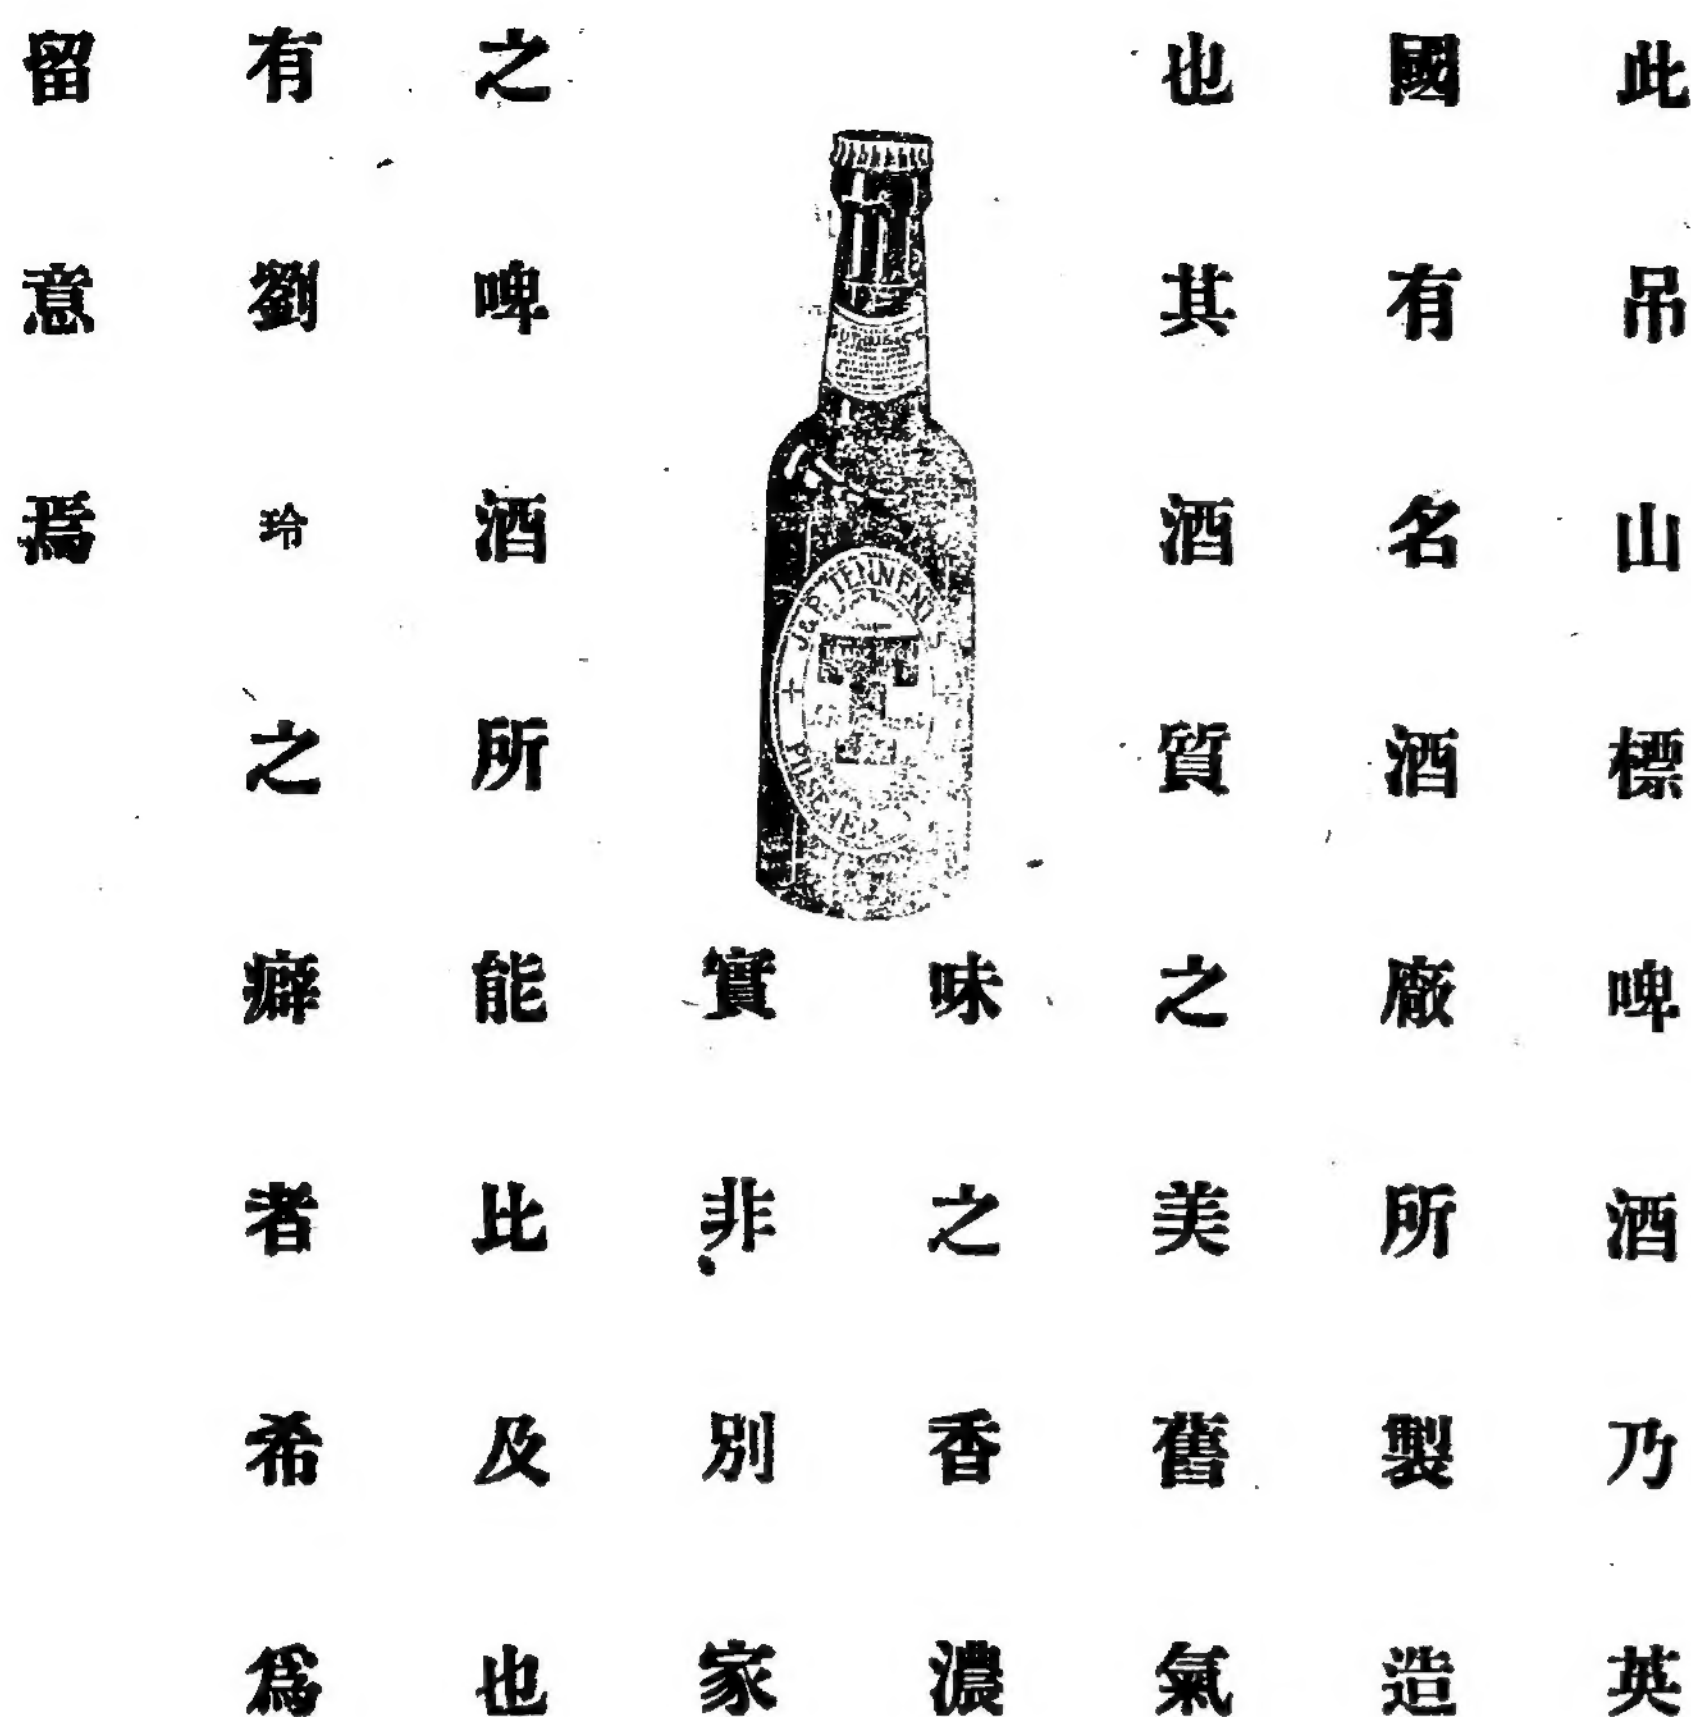 此吊山標啤酒乃英
國有名酒廠所製造
也其酒質之美舊氣
味之香濃
實非別家
之啤酒所能比及也
有劉玲之癖者希爲
留意焉
J & R TENNENT
PILSENER